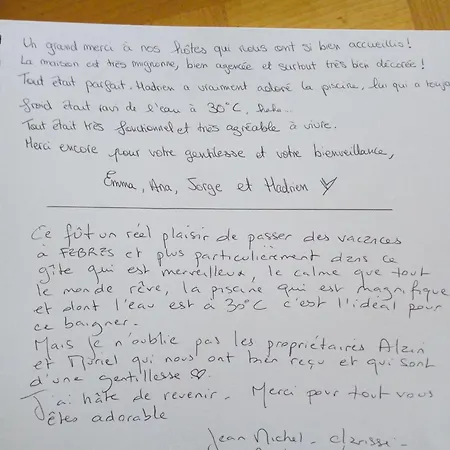 Un grand merci à nos hôtes qui nous ont si bien accueillis!
La maison est très mignonne, bien agencée et surtout très bien décorée!
Tout était parfait. Hadrien a vraiment adoré la piscine, lui qui a toujou
froid était ravi de l'eau à 30°C, hehe...
Tout était très fonctionnel et très agréable à vivre.
Merci encore pour votre gentillesse et votre bienveillance,
Emma, Ana, Jorge et Hadrien
Ce fût un réel plaisir de passer des vacances
à FEBRES et plus particulièrement dans ce
gîte qui est merveilleux, le calme que tout
le monde rêve, la piscine qui est magnifique
et dont l'eau est à 30°C c'est l'idéal pour
ce baigner.
Mais je n'oublie pas les propriétaires Alain
et Muriel qui nous ont bien reçu et qui sont
d'une gentillesse ♡.
J'ai hâte de revenir. Merci pour tout vous
êtes adorable
Jean Michel - Clarisse -